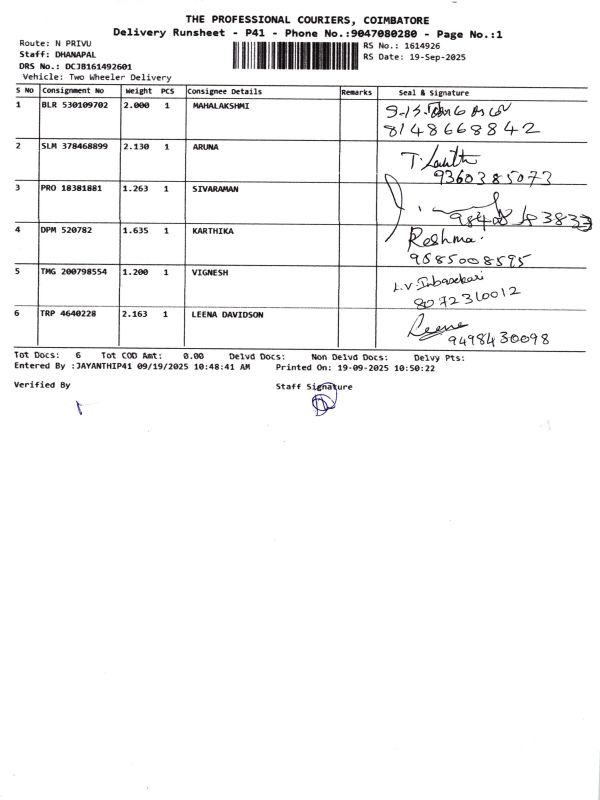 THE PROFESSIONAL COURIERS, COIMBATORE
Delivery Runsheet - P41 - Phone No.:9047080280 - Page No.:1
Route: N PRIVU
RS No.: 1614926
Staff: DHANAPAL
RS Date: 19-Sep-2025
DRS No.: DCJB161492601
Vehicle: Two Wheeler Delivery
S No Consignment No Weight PCS Consignee Details Remarks Seal & Signature
1 BLR 530109702 2.000 1 MAHALAKSHMI
8148668842
2 SLM 378468899 2.130 1 ARUNA
9360385073
3 PRO 18381881 1.263 1 SIVARAMAN
4 DPM 520782 1.635 1 KARTHIKA Reshma.
9685008595
5 TMG 200798554 1.200 1 VIGNESH
8072310012
6 TRP 4640228 2.163 1 LEENA DAVIDSON Leena
9498430098
Tot Docs: 6 Tot COD Amt: 0.00 Delvd Docs: Non Delvd Docs: Delvy Pts:
Entered By :JAYANTHIP41 09/19/2025 10:48:41 AM Printed On: 19-09-2025 10:50:22
Verified By Staff Signature